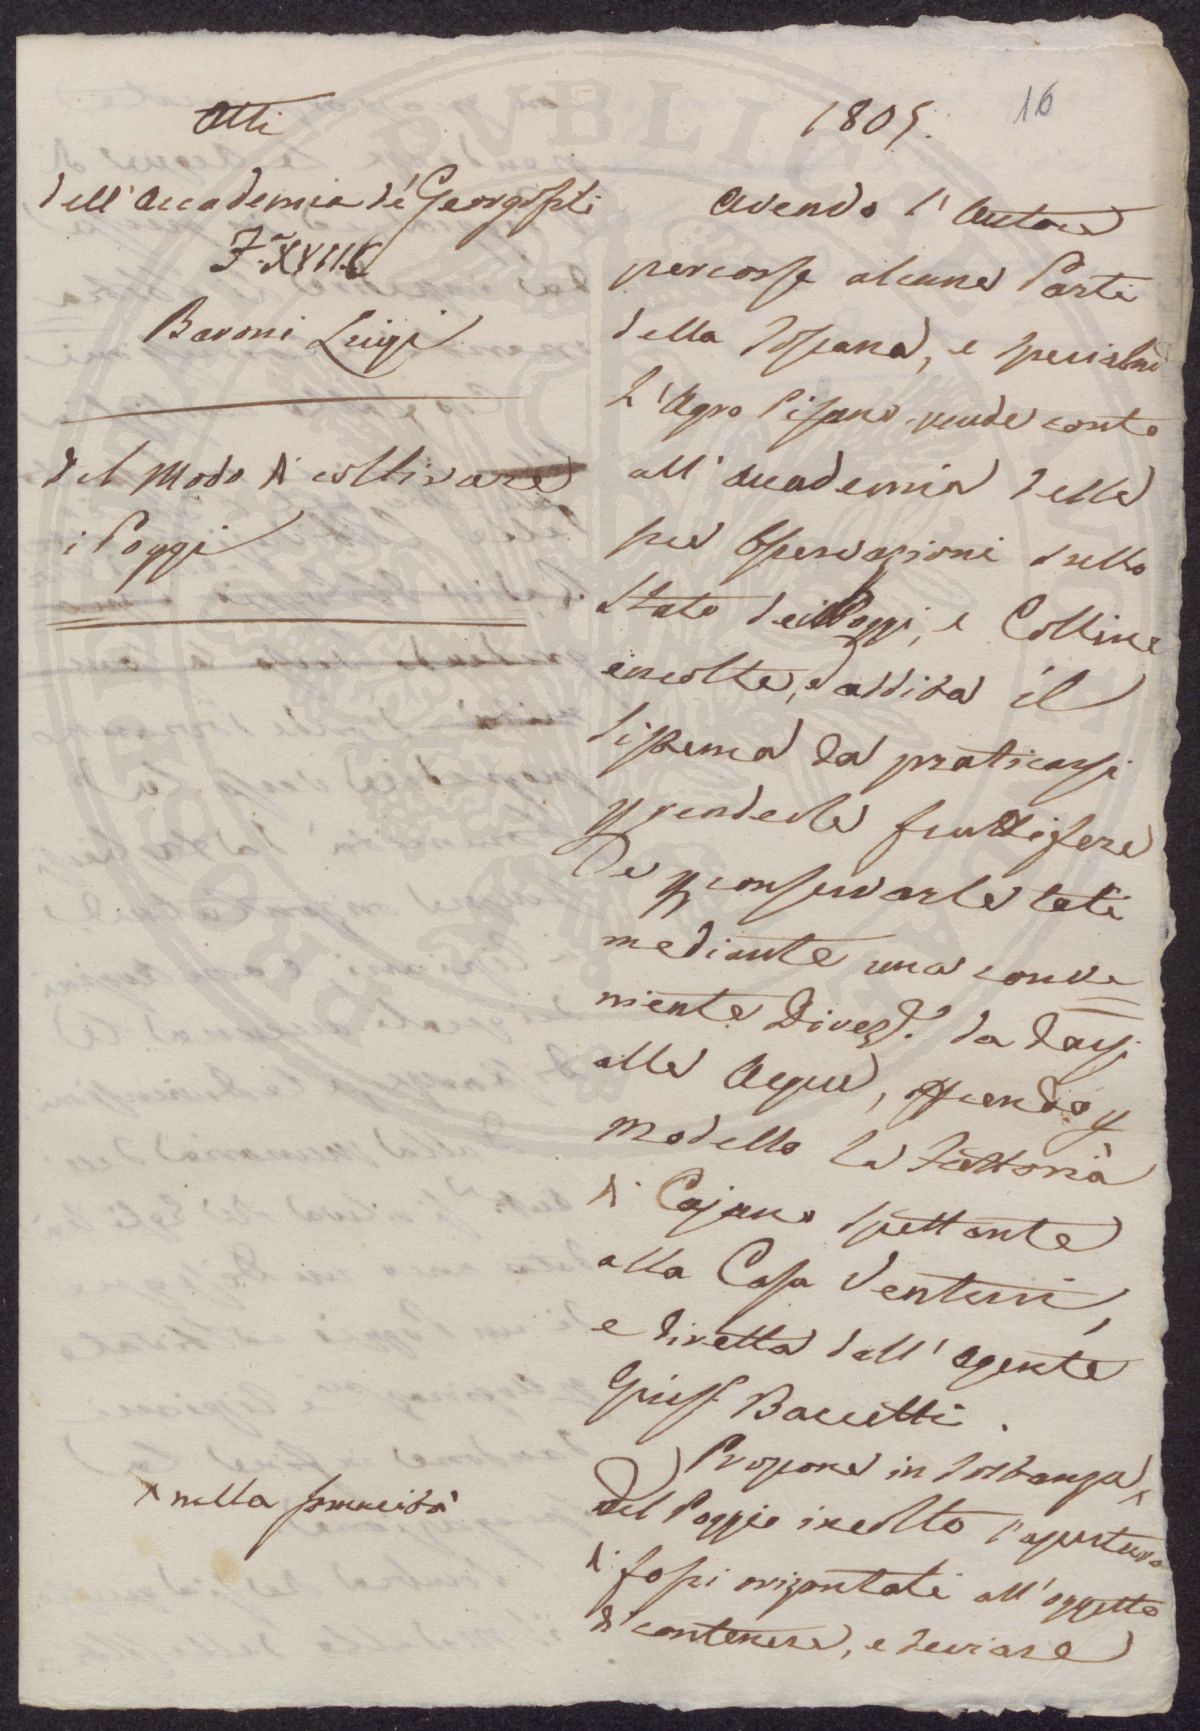 16
Atti
dell'Accademia de' Georgofili
Baroni Luigi
Del Modo di coltivare
i Poggi
1805.
Avendo l'Autore
percorse alcune Parti
della Toscana, e specialm.e
l'Agro Pisano rende conto
all'Accademia delle
sue Osservazioni sullo
Stato dei Poggi, e Colline
incolte, e addita il
Sistema da praticarsi
p renderle fruttifere
e p conservarle tali
mediante una conve
niente Direz.e da darsi
alle Acque, essendo p
modello la Fattoria
di Cajano spettante
alla Casa Venturi,
e diretta dall'Agente
Gius. Baccetti.
Propone in sostanza
x nella primcità
del Poggio incolto l'apertura
di fossi orizontali all'oggetto
di contenere, e deviare